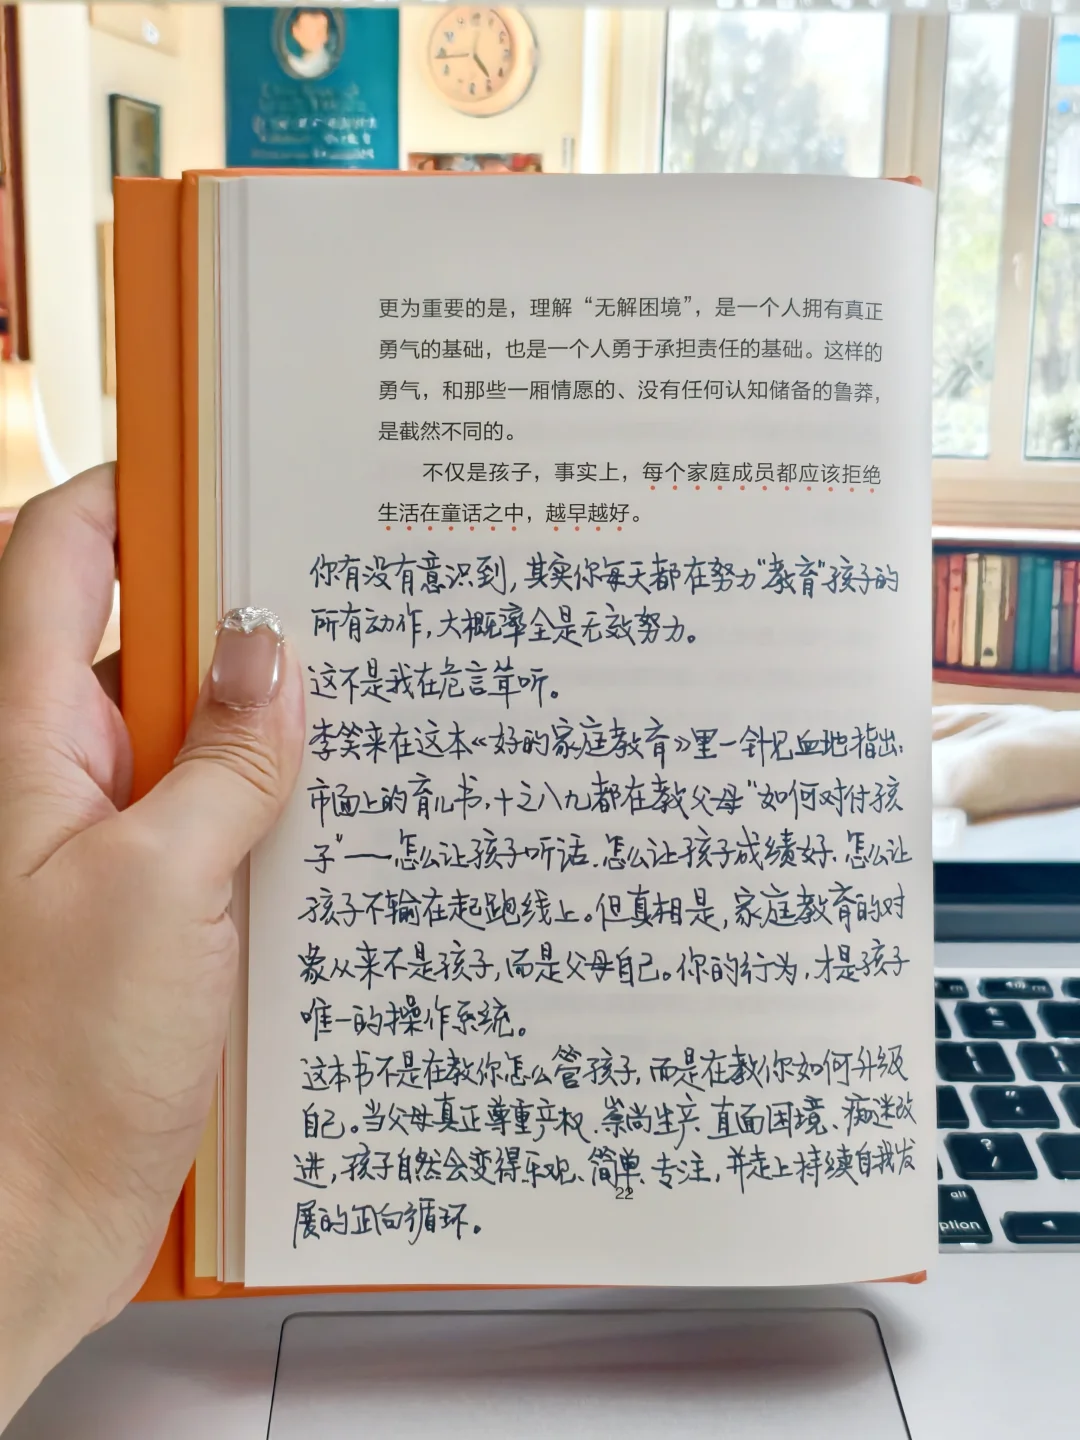 更为重要的是，理解“无解困境”，是一个人拥有真正
勇气的基础，也是一个人勇于承担责任的基础。这样的
勇气，和那些一厢情愿的、没有任何认知储备的鲁莽，
是截然不同的。
不仅是孩子，事实上，每个家庭成员都应该拒绝
生活在童话之中，越早越好。
你有没有意识到，其实你每天都在努力“教育”孩子的
所有动作，大概率全是无效努力。
这不是我在危言耸听。
李笑来在这本《好的家庭教育》里一针见血地指出：
市面上的育儿书，十之八九都在教父母“如何对付孩
子”——怎么让孩子听话、怎么让孩子成绩好、怎么让
孩子不输在起跑线上。但真相是，家庭教育的对
象从来不是孩子，而是父母自己。你的行为，才是孩子
唯一的操作系统。
这本书不是在教你怎么管孩子，而是在教你如何升级
自己。当父母真正尊重产权、崇尚生产、直面困境、痴迷改
进，孩子自然会变得乐观、简单、专注，并走上持续自我发
展的正向循环。
22
alt
option